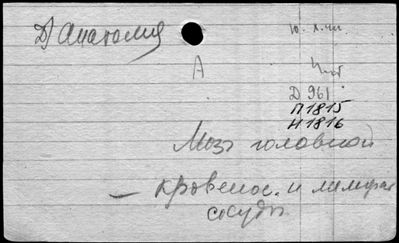 Д) Анатомия
А
Д 961
П1815
Н1816
Мозг головной
— кровенос. и лимфат
сосуды